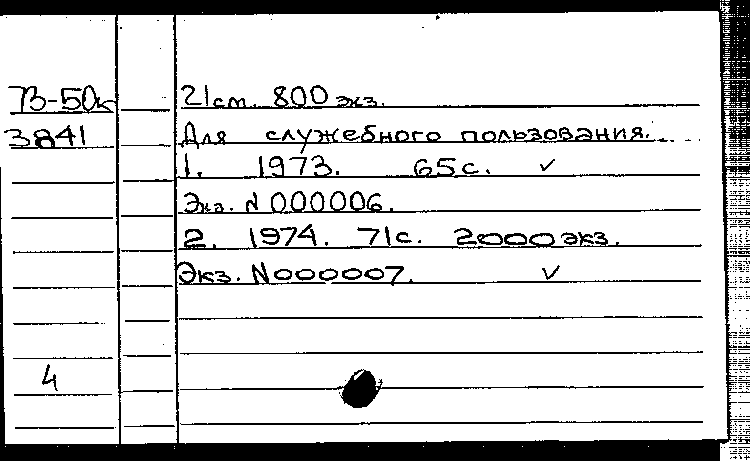 73-50к
3841
21см. 800 экз.
Для служебного пользования.
1. 1973. 65с. ✓
Экз. N 000006.
2. 1974. 71с. 2000 экз.
Экз. N000007. ✓
4